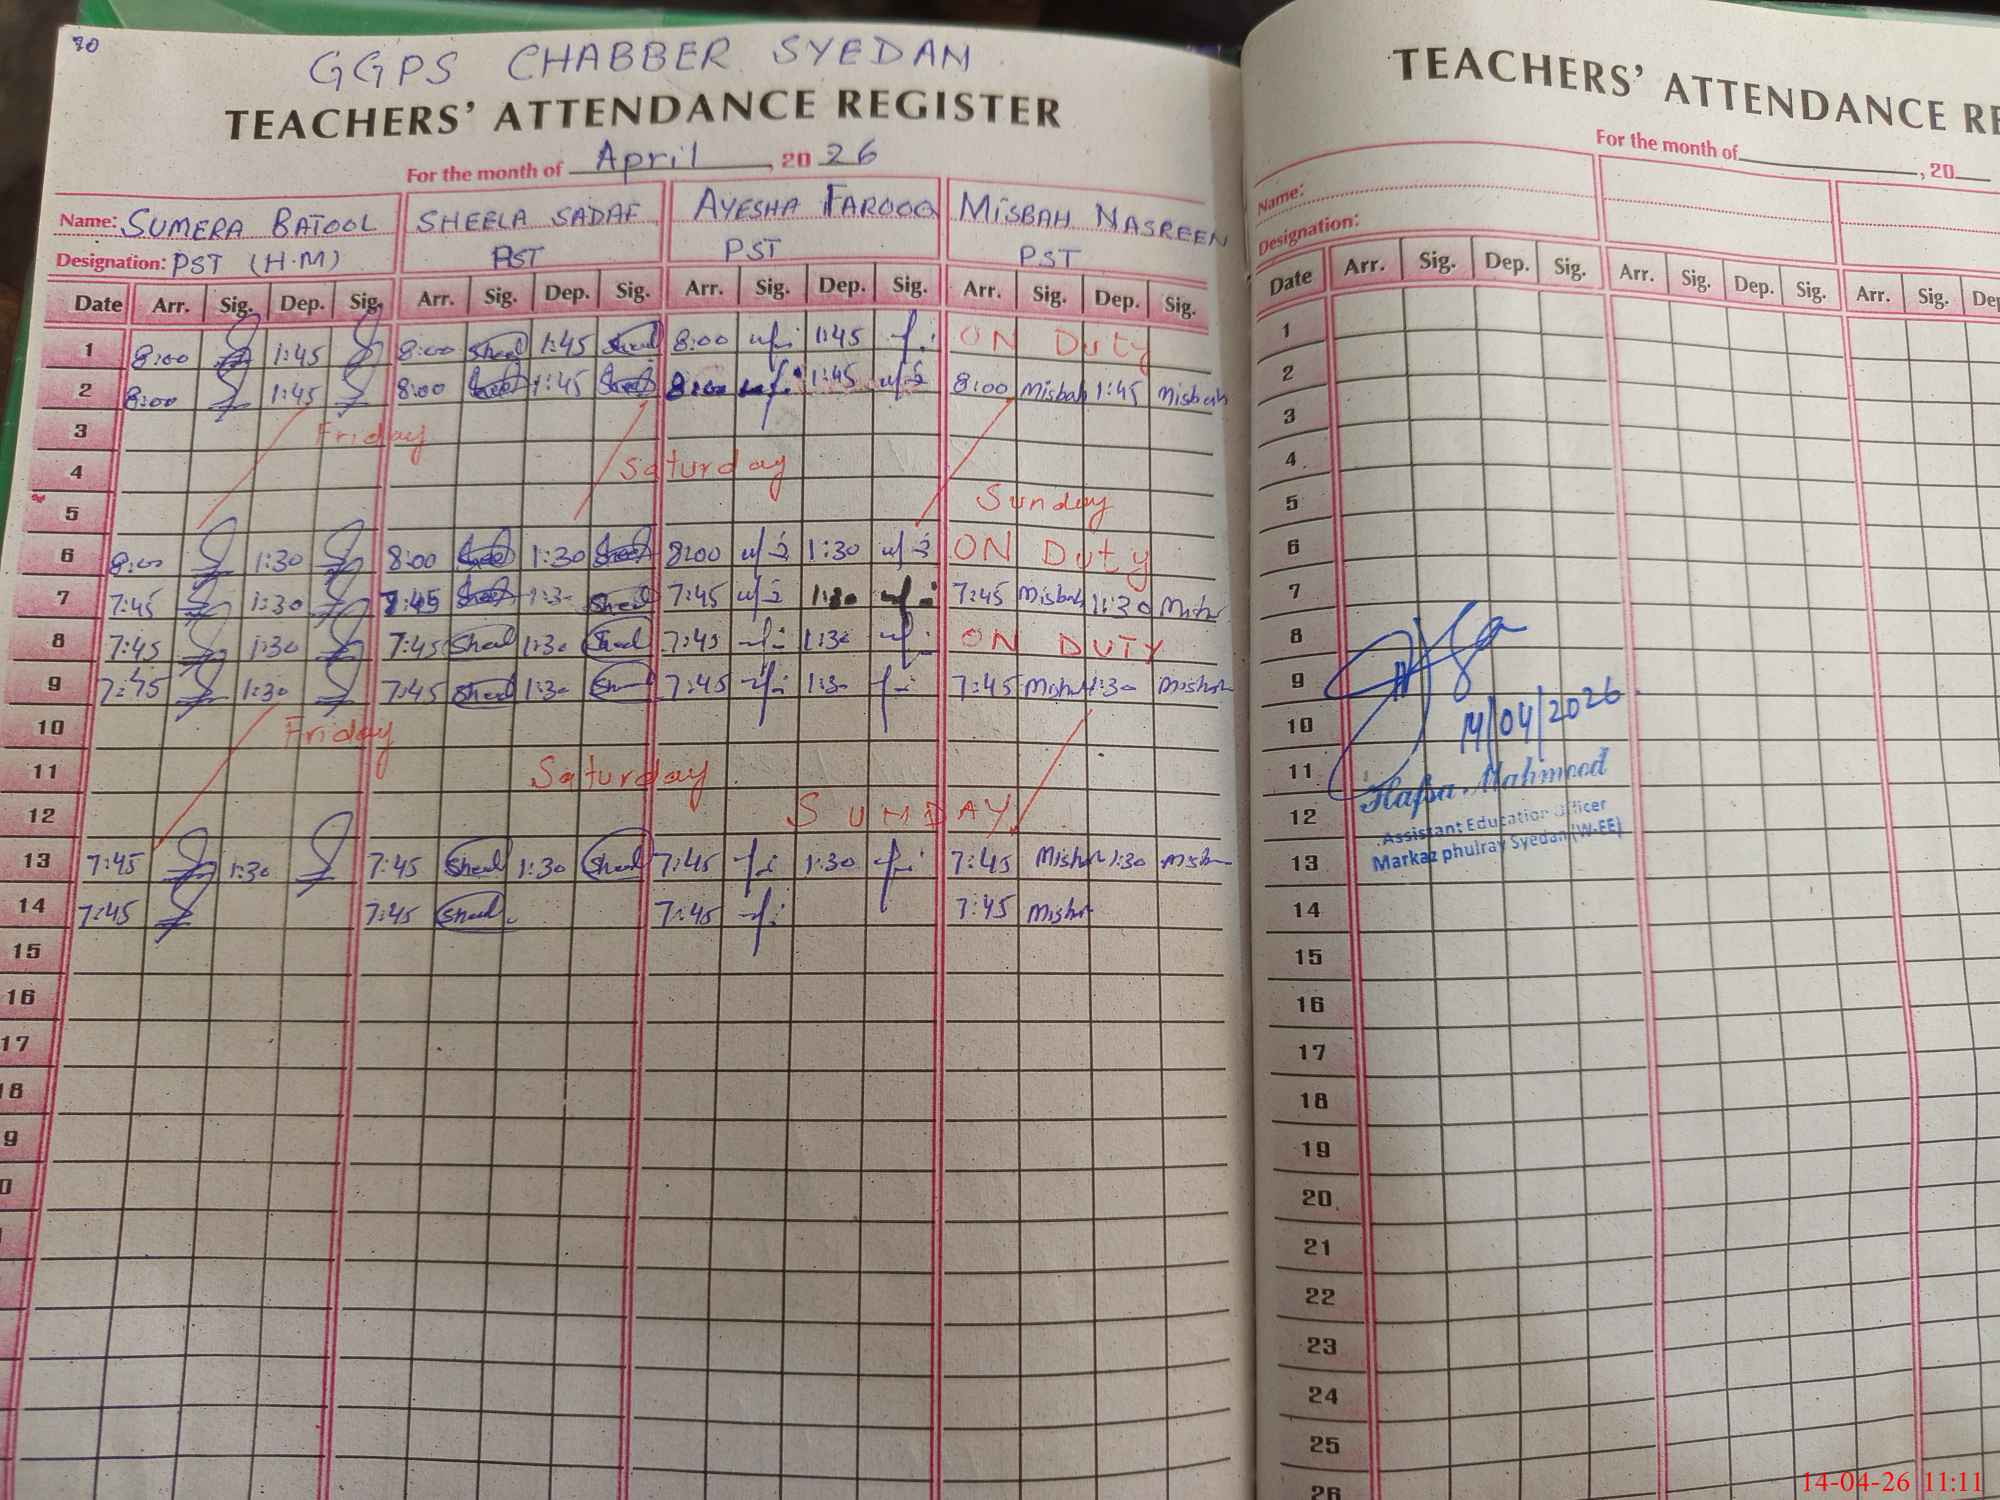 20
GGPS CHABBER SYEDAN
TEACHERS' ATTENDANCE REGISTER
For the month of April, 2026
Name: SUMERA BATOOL SHEELA SADAF AYESHA FAROOQ MISBAH NASREEN
Designation: PST (H.M) PST PST PST
Date Arr. Sig. Dep. Sig. Arr. Sig. Dep. Sig. Arr. Sig. Dep. Sig. Arr. Sig. Dep. Sig.
1 8:00 1:45 8:00 Sheel 1:45 Sheel 8:00 1:45 ON Duty
2 8:00 1:45 8:00 Sheel 1:45 Sheel 8:00 1:45 8:00 Misbah 1:45 Misbah
3 Friday
4 Saturday
5 Sunday
6 8:00 1:30 8:00 Sheel 1:30 Sheel 8:00 1:30 ON Duty
7 7:45 1:30 7:45 Sheel 1:30 Sheel 7:45 1:30 7:45 Misbah 1:30 Misbah
8 7:45 1:30 7:45 Sheel 1:30 Sheel 7:45 1:30 ON DUTY
9 7:45 1:30 7:45 Sheel 1:30 Sheel 7:45 1:30 7:45 Misbah 1:30 Misbah
10 Friday
11 Saturday
12 SUNDAY
13 7:45 1:30 7:45 Sheel 1:30 Sheel 7:45 1:30 7:45 Misbah 1:30 Misbah
14 7:45 7:45 Sheel 7:45 7:45 Misbah
15
16
17
18
9
0
TEACHERS' ATTENDANCE RE
For the month of , 20
Name:
Designation:
Date Arr. Sig. Dep. Sig. Arr. Sig. Dep. Sig. Arr. Sig. De
1
2
3
4
5
6
7
8
9
10
11
12
13
14
15
16
17
18
19
20
21
22
23
24
25
26
14/04/2026
Hafsa Mahmood
Assistant Education Officer
Markaz phulray Syedan (W-EE)
14-04-26 11:11